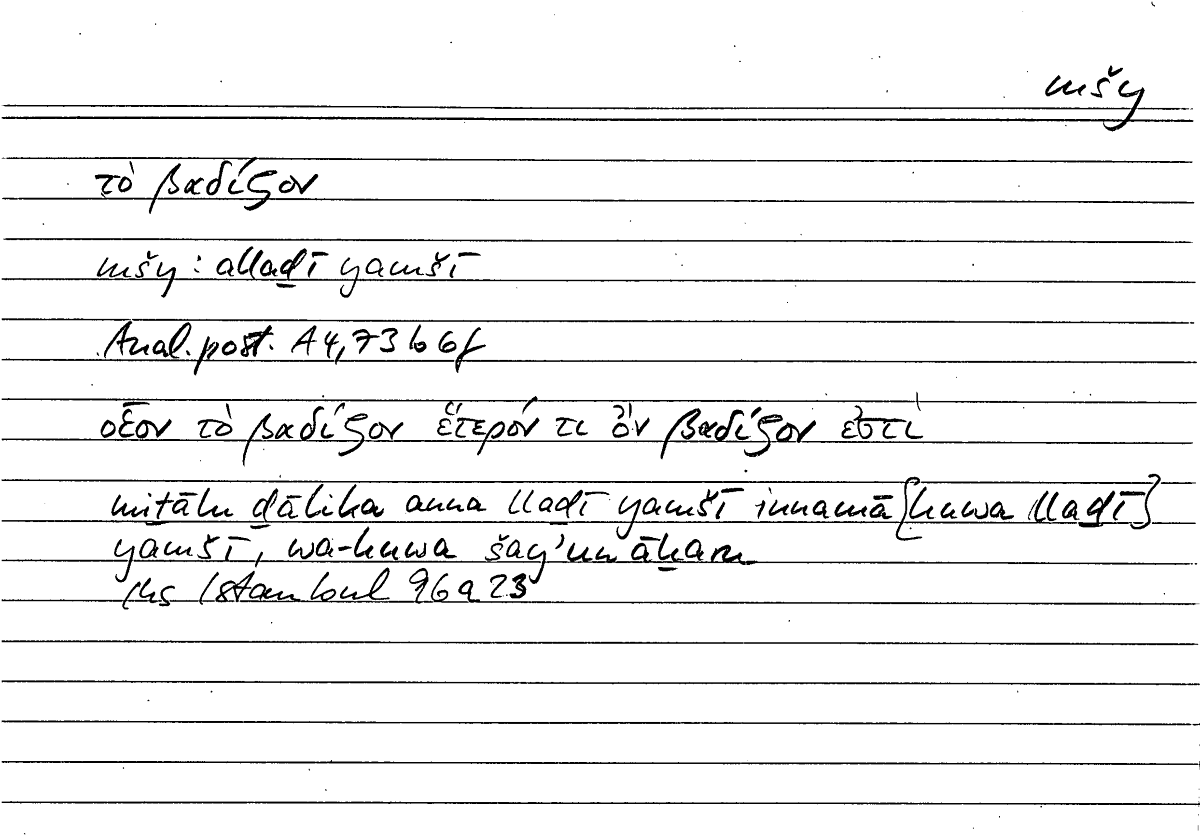 mšy
τὸ βαδίζον
mšy : allaḏī yamšī
Anal. post. A4, 73 b 6f
οἷον τὸ βαδίζον ἕτερόν τι ὂν βαδίζον ἐστί
miṯālu ḏālika anna llaḏī yamšī innamā {huwa llaḏī}
yamšī, wa-huwa šay'un āḫaru
Hs Istanbul 96a23